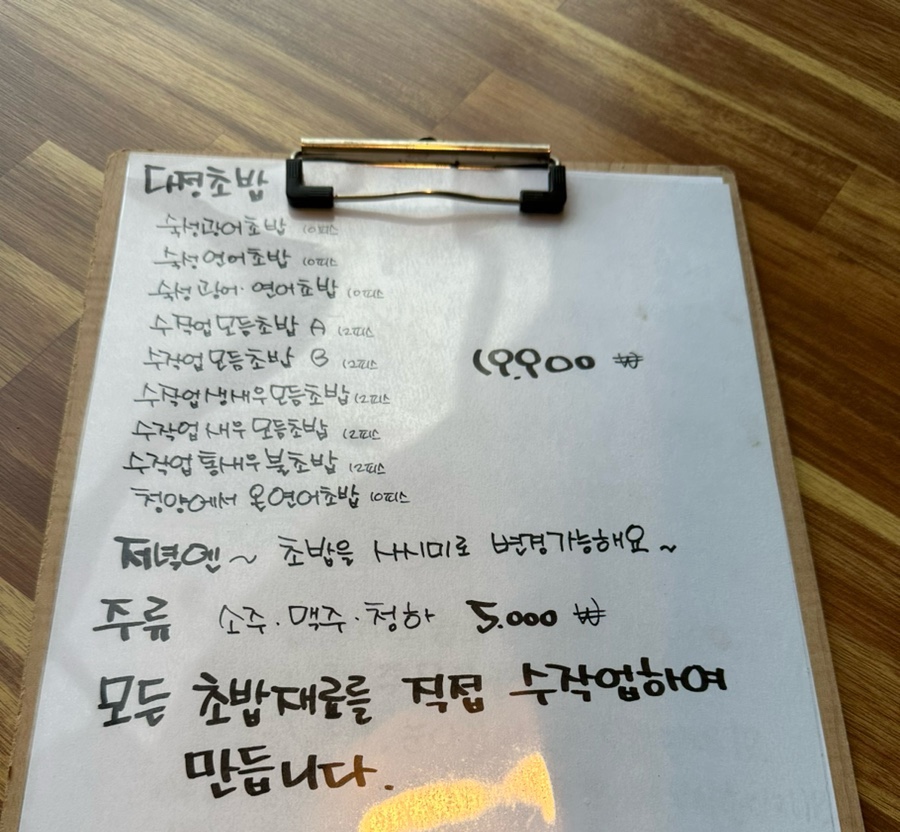 다정초밥
숙성광어초밥 10피스
숙성연어초밥 10피스
숙성광어·연어초밥 10피스
수작업모듬초밥 A 12피스
수작업모듬초밥 B 12피스 19.900 ₩
수작업생새우모듬초밥 12피스
수작업새우모듬초밥 12피스
수작업통새우불초밥 12피스
청양에서온연어초밥 10피스
저녁엔~ 초밥을 사시미로 변경가능해요~
주류 소주·맥주·청하 5.000 ₩
모든 초밥재료를 직접 수작업하여
만듭니다.